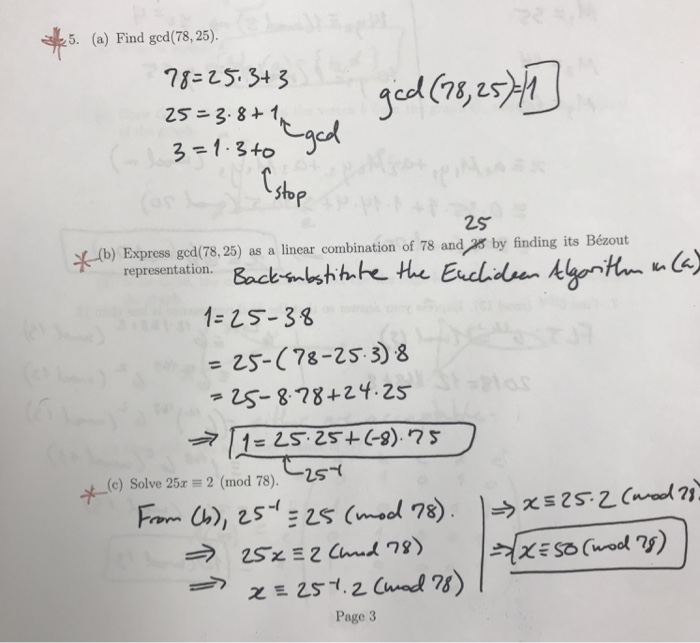 5. (a) Find gcd(78, 25).
78=25·3+3
25=3·8+1
gcd
3=1·3+0
stop
gcd(78,25)=1
25
(b) Express gcd(78, 25) as a linear combination of 78 and 25 by finding its Bézout
representation. Back-substitute the Euclidean Algorithm in (a)
1=25-3·8
=25-(78-25·3)·8
=25-8·78+24·25
⇒ 1=25·25+(-8)·75
25⁻¹
(c) Solve 25x ≡ 2 (mod 78).
From (b), 25⁻¹≡25 (mod 78).
⇒ 25x≡2 (mod 78)
⇒ x≡25⁻¹·2 (mod 78)
⇒ x≡25·2 (mod 78)
⇒ x≡50 (mod 78)
Page 3